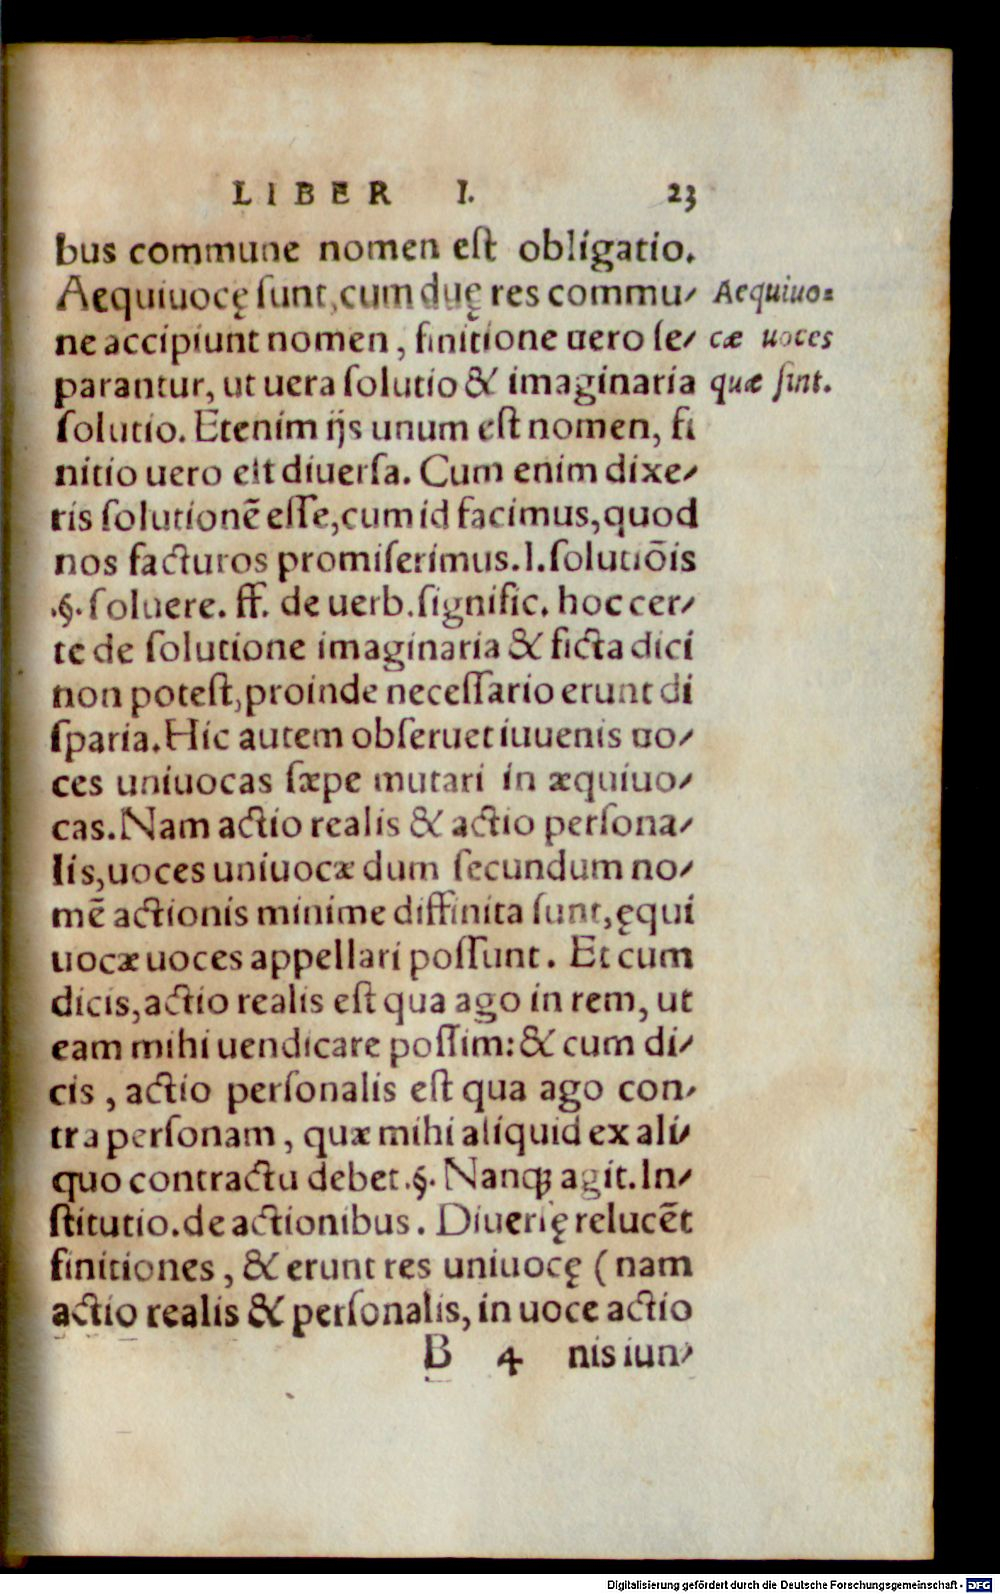 LIBER I. 23
bus commune nomen est obligatio.
Aequiuocę sunt, cum duę res commu-
ne accipiunt nomen, finitione uero se-
parantur, ut uera solutio & imaginaria
solutio. Etenim ijs unum est nomen, fi
nitio uero est diuersa. Cum enim dixe-
ris solutionē esse, cum id facimus, quod
nos facturos promiserimus. l. solutiōis
.§. soluere. ff. de uerb. signific. hoc cer-
te de solutione imaginaria & ficta dici
non potest, proinde necessario erunt di
sparia. Hic autem obseruet iuuenis uo-
ces uniuocas sæpe mutari in æquiuo-
cas. Nam actio realis & actio persona-
lis, uoces uniuocæ dum secundum no-
mē actionis minime diffinita sunt, ęqui
uocæ uoces appellari possunt. Et cum
dicis, actio realis est qua ago in rem, ut
eam mihi uendicare possim: & cum di-
cis, actio personalis est qua ago con-
tra personam, quæ mihi aliquid ex ali-
quo contractu debet. §. Nanq́ue agit. In-
stitutio. de actionibus. Diuersę relucēt
finitiones, & erunt res uniuocę (nam
actio realis & personalis, in uoce actio
B 4 nis iun-
Aequiuo-
cæ uoces
quæ sint.
Digitalisierung gefördert durch die Deutsche Forschungsgemeinschaft - DFG